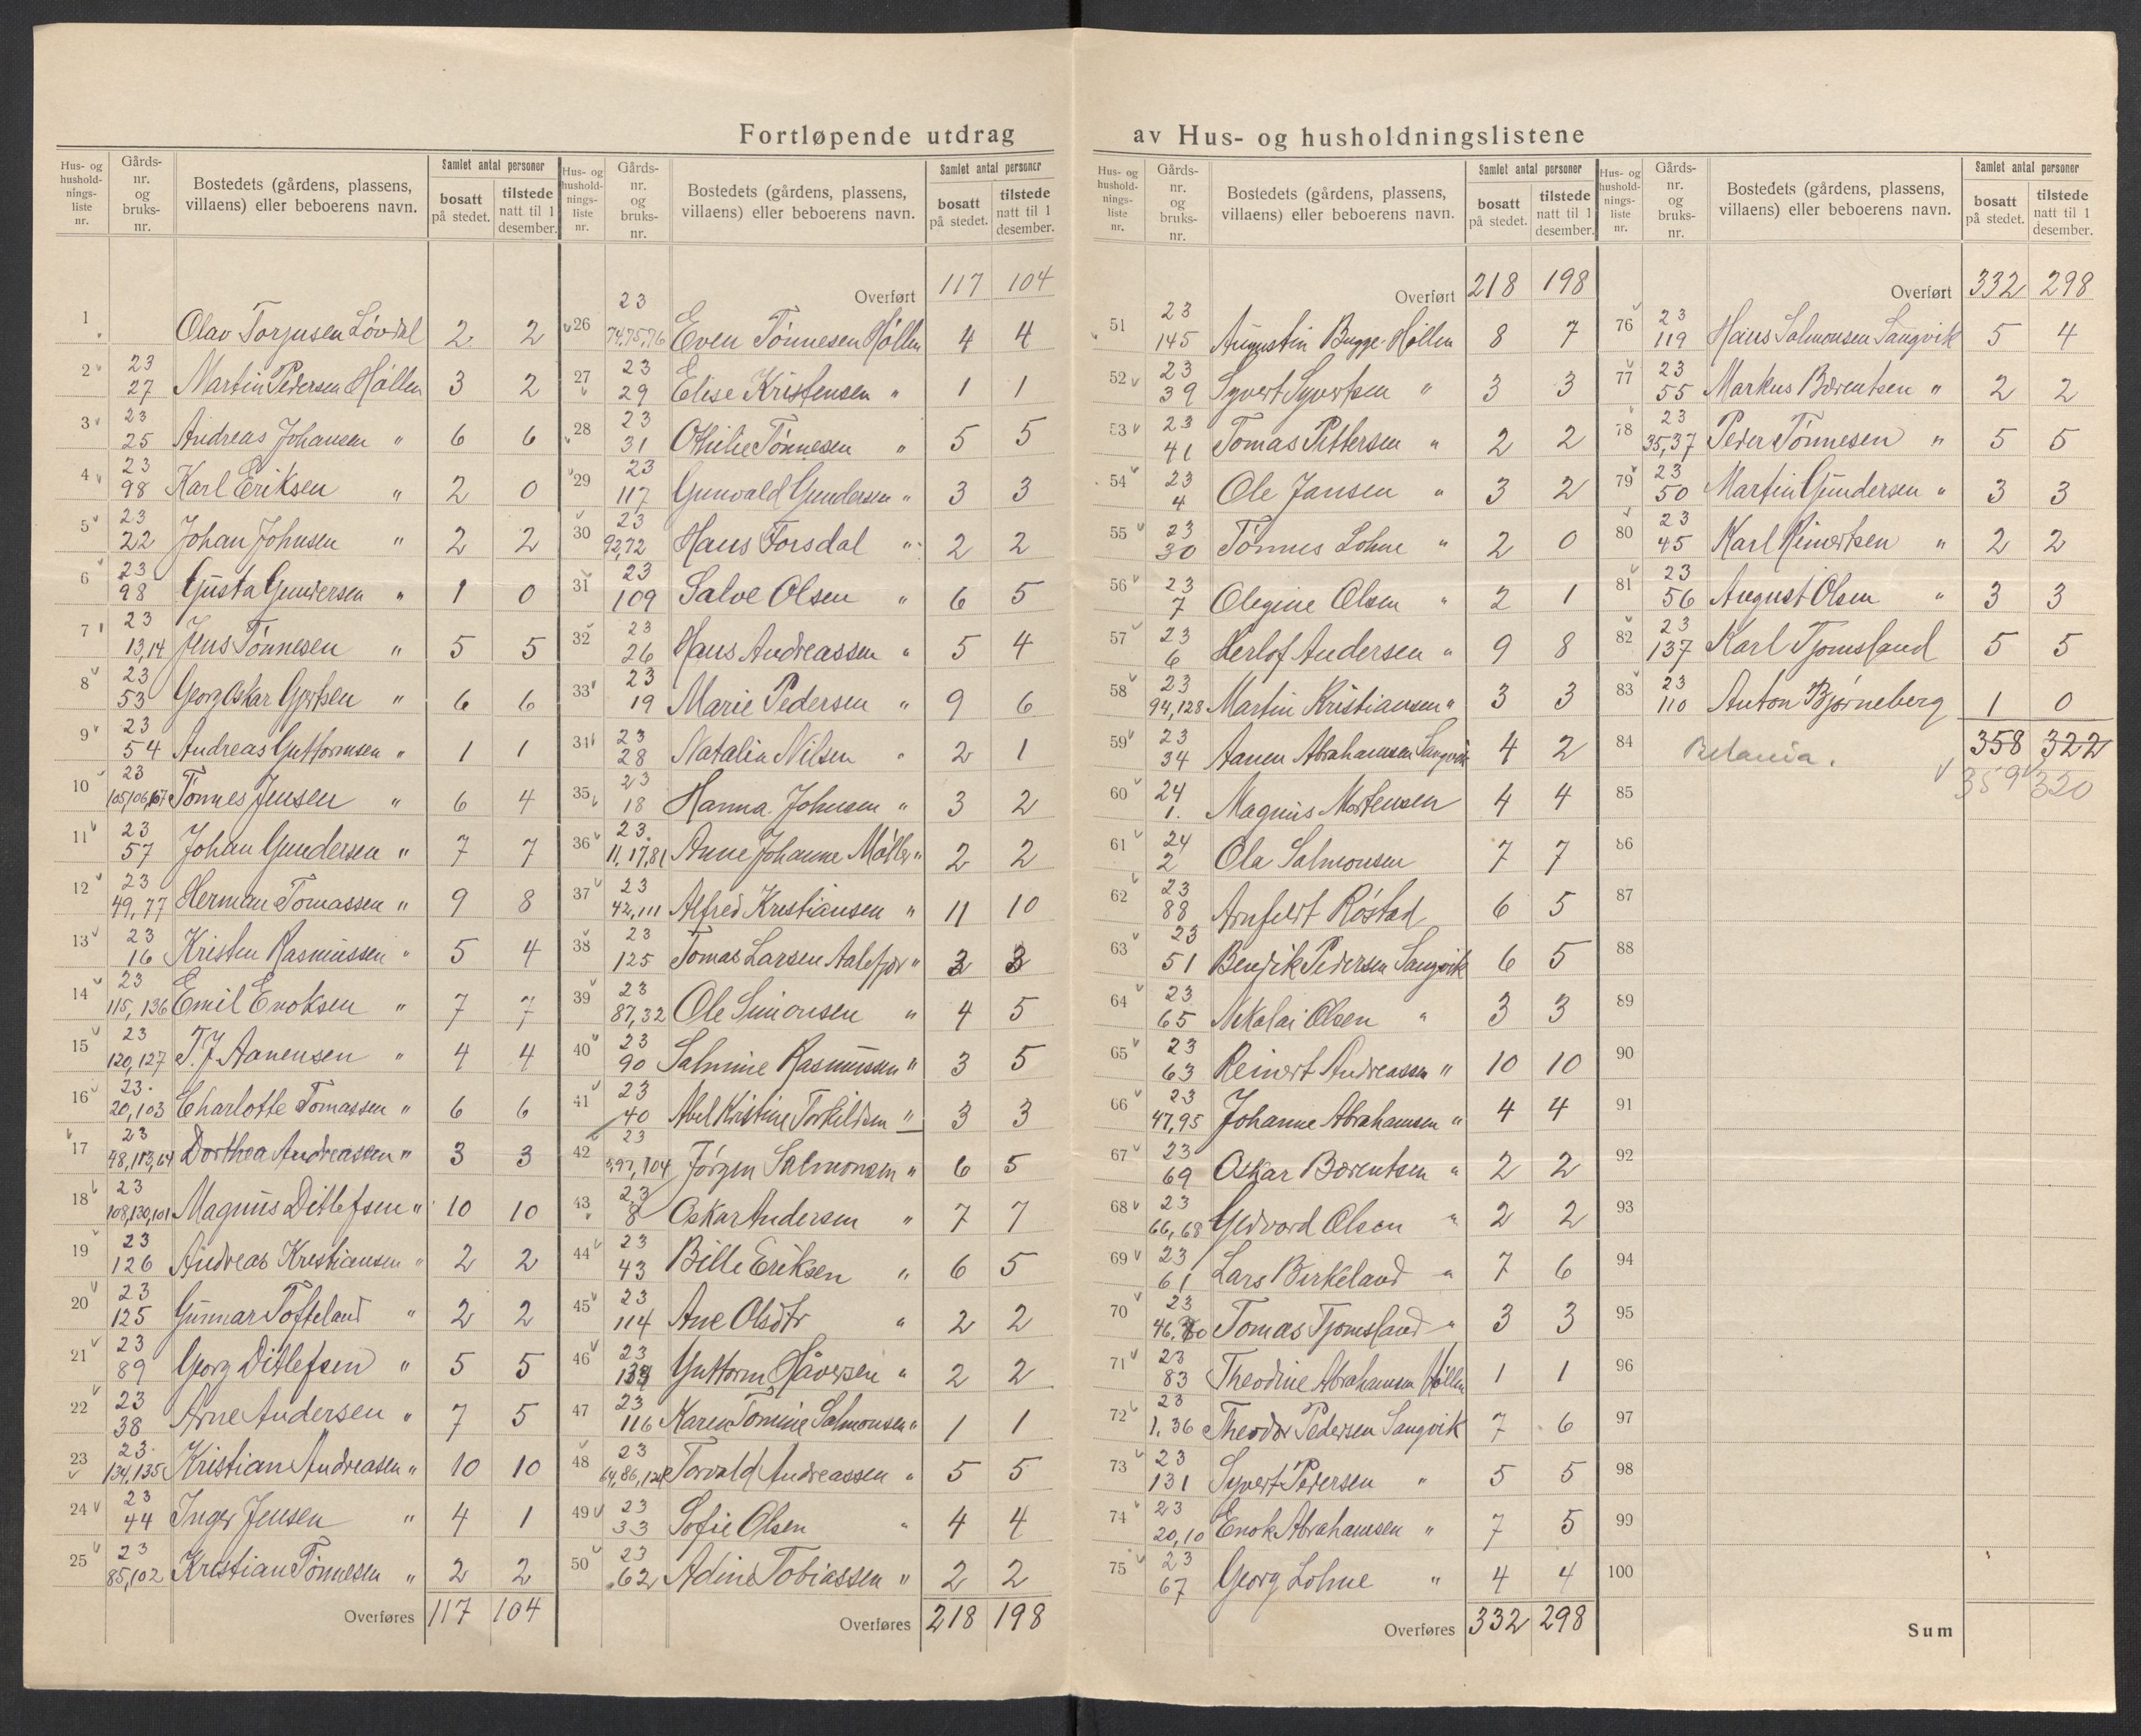 Fortløpende utdrag av Hus- og husholdningslistene
Hus- og husholdnings-liste nr. | Gårds-nr. og bruks-nr. | Bostedets (gårdens, plassens, villaens) eller beboerens navn. | Samlet antal personer | bosatt på stedet. | tilstede natt til 1 desember.
1 Olav Torjusen Lövdal 2 2
2 23 27 Martin Pedersen Höllen 3 2
3 23 25 Andreas Johansen " 6 6
4 23 98 Karl Eriksen " 2 0
5 23 22 Johan Johnsen " 2 2
6 23 98 Gusta Gundersen " 1 0
7 23 13,14 Jens Tönnesen " 5 5
8 23 53 Georg Oskar Gjertsen " 6 6
9 23 54 Andreas Guttormsen " 1 1
10 23 105,106,107 Tönnes Jensen " 6 4
11 23 57 Johan Gundersen " 7 7
12 23 49,77 Herman Tomassen " 9 8
13 23 16 Kristen Rasmussen " 5 4
14 23 115,136 Emil Enoksen " 7 7
15 23 120,127 T. J. Aanensen " 4 4
16 23 20,103 Charlotte Tomassen " 6 6
17 23 48,113,64 Dorthea Andreassen " 3 3
18 23 108,130,101 Magnus Ditlefsen " 10 10
19 23 126 Andreas Kristiansen " 2 2
20 23 125 Gunnar Tofteland " 2 2
21 23 89 Georg Ditlefsen " 5 5
22 23 38 Arne Andersen " 7 5
23 23 134,135 Kristian Andreasen " 10 10
24 23 44 Inger Jensen " 4 1
25 23 85,102 Kristian Tönnesen " 2 2
Overføres 117 104
Hus- og husholdnings-liste nr. | Gårds-nr. og bruks-nr. | Bostedets (gårdens, plassens, villaens) eller beboerens navn. | Samlet antal personer | bosatt på stedet. | tilstede natt til 1 desember.
Overført 117 104
26 23 74,75,76 Even Tönnesen Höllen 4 4
27 23 29 Elise Kristensen " 1 1
28 23 31 Othilie Tönnesen " 5 5
29 23 117 Gunvald Gundersen " 3 3
30 23 92,72 Hans Forsdal " 2 2
31 23 109 Salve Olsen " 6 5
32 23 26 Hans Andreassen " 5 4
33 23 19 Marie Pedersen " 9 6
34 23 28 Natalia Nilsen " 2 1
35 23 18 Hanna Johnsen " 3 2
36 23 11,17,81 Anne Johanne Möller " 2 2
37 23 42,111 Alfred Kristiansen " 11 10
38 23 125 Tomas Larsen Aalefjær " 3 3
39 23 87,32 Ole Simonsen " 4 5
40 23 90 Salmine Rasmussen " 3 5
41 23 40 Abel Kristine Torkildsen " 3 3
42 23 5,97,104 Jörgen Salmonsen " 6 5
43 23 8 Oskar Andersen " 7 7
44 23 43 Bille Eriksen " 6 5
45 23 114 Ane Olsdtr " 2 2
46 23 Guttorm Håversen " 2 2
47 23 116 Karen Tomine Salmonsen " 1 1
48 23 64,86,124 Torvald Andreassen " 5 5
49 23 33 Sofie Olsen " 4 4
50 23 62 Adine Tobiassen " 2 2
Overføres 218 198
Hus- og husholdnings-liste nr. | Gårds-nr. og bruks-nr. | Bostedets (gårdens, plassens, villaens) eller beboerens navn. | Samlet antal personer | bosatt på stedet. | tilstede natt til 1 desember.
Overført 218 198
51 23 145 Augustin Bugge-Höllen 8 7
52 23 39 Syvert Syvertsen " 3 3
53 23 41 Tomas Pettersen " 2 2
54 23 4 Ole Jansen " 3 2
55 23 30 Tönnes Lohne " 2 0
56 23 7 Olegine Olsen " 2 1
57 23 6 Herlof Andersen " 9 8
58 23 94,128 Martin Kristiansen " 3 3
59 23 34 Aanen Abrahamsen Langvik 4 2
60 24 1. Magnus Mortensen 4 4
61 24 2 Ola Salmonsen 7 7
62 23 88 Arnfeldt Röstad 6 5
63 23 51 Bendik Pedersen Langvik 6 5
64 23 65 Nikolai Olsen " 3 3
65 23 63 Reinert Andreassen " 10 10
66 23 47,95 Johanne Abrahamsen " 4 4
67 23 69 Oskar Bærentsen " 2 2
68 23 66,68 Gedvard Olsen " 2 2
69 23 61 Lars Birkeland " 7 6
70 23 46,80 Tomas Tjomsland " 3 3
71 23 83 Theodine Abrahamsen Höllen 1 1
72 23 1,36 Theodor Pedersen Langvik 7 6
73 23 131 Syvert Pedersen " 5 5
74 23 20,10 Enok Abrahamsen " 7 5
75 23 67 Georg Lohne " 4 4
Overføres 332 298
Hus- og husholdnings-liste nr. | Gårds-nr. og bruks-nr. | Bostedets (gårdens, plassens, villaens) eller beboerens navn. | Samlet antal personer | bosatt på stedet. | tilstede natt til 1 desember.
Overført 332 298
76 23 119 Hans Salmonsen Langvik 5 4
77 23 55 Markus Bærentsen " 2 2
78 23 35,37 Peder Tönnesen " 5 5
79 23 50 Martin Gundersen " 3 3
80 23 45 Karl Reinertsen " 2 2
81 23 56 August Olsen " 3 3
82 23 137 Karl Tjomsland 5 5
83 23 110 Anton Bjørneberg 1 0
84 Betania. 358 322
85 359 320
86
87
88
89
90
91
92
93
94
95
96
97
98
99
100
Sum